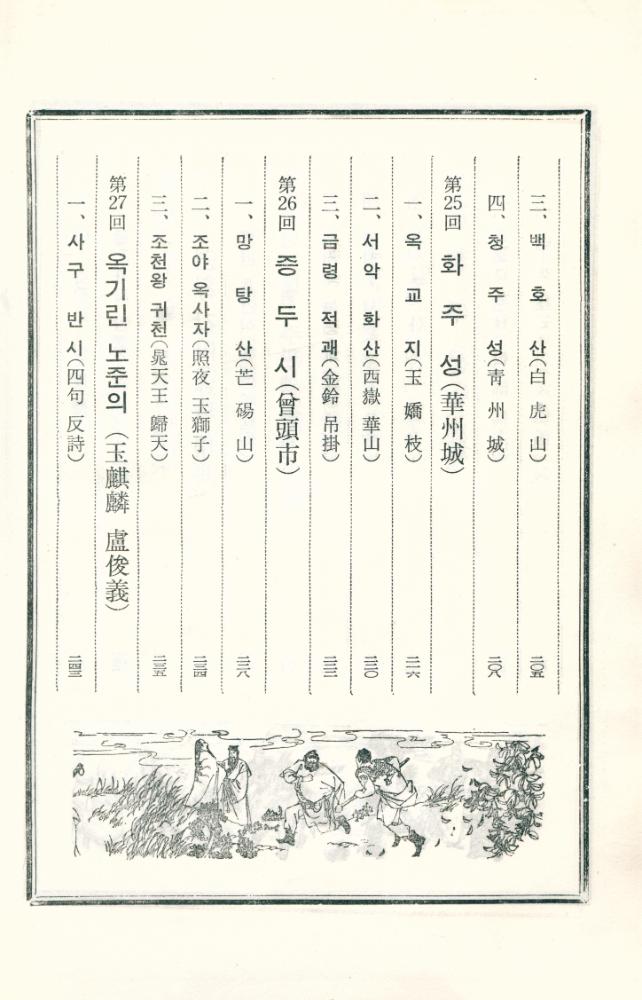 三、백 호 산(白 虎 山) 二〇五
四、청 주 성(靑 州 城) 二〇八
第25回 화 주 성(華州城)
一、옥 교 지(玉 嬌 枝) 二一六
二、서 악 화 산(西嶽 華山) 二二〇
三、금 령 적 괘(金鈴 吊掛) 二二三
第26回 증 두 시(曾頭市)
一、망 탕 산(芒 碭 山) 二二八
二、조야 옥사자(照夜 玉獅子) 二三四
三、조천왕 귀천(晁天王 歸天) 二三五
第27回 옥기린 노준의 (玉麒麟 盧俊義)
一、사구 반시(四句 反詩) 二四三